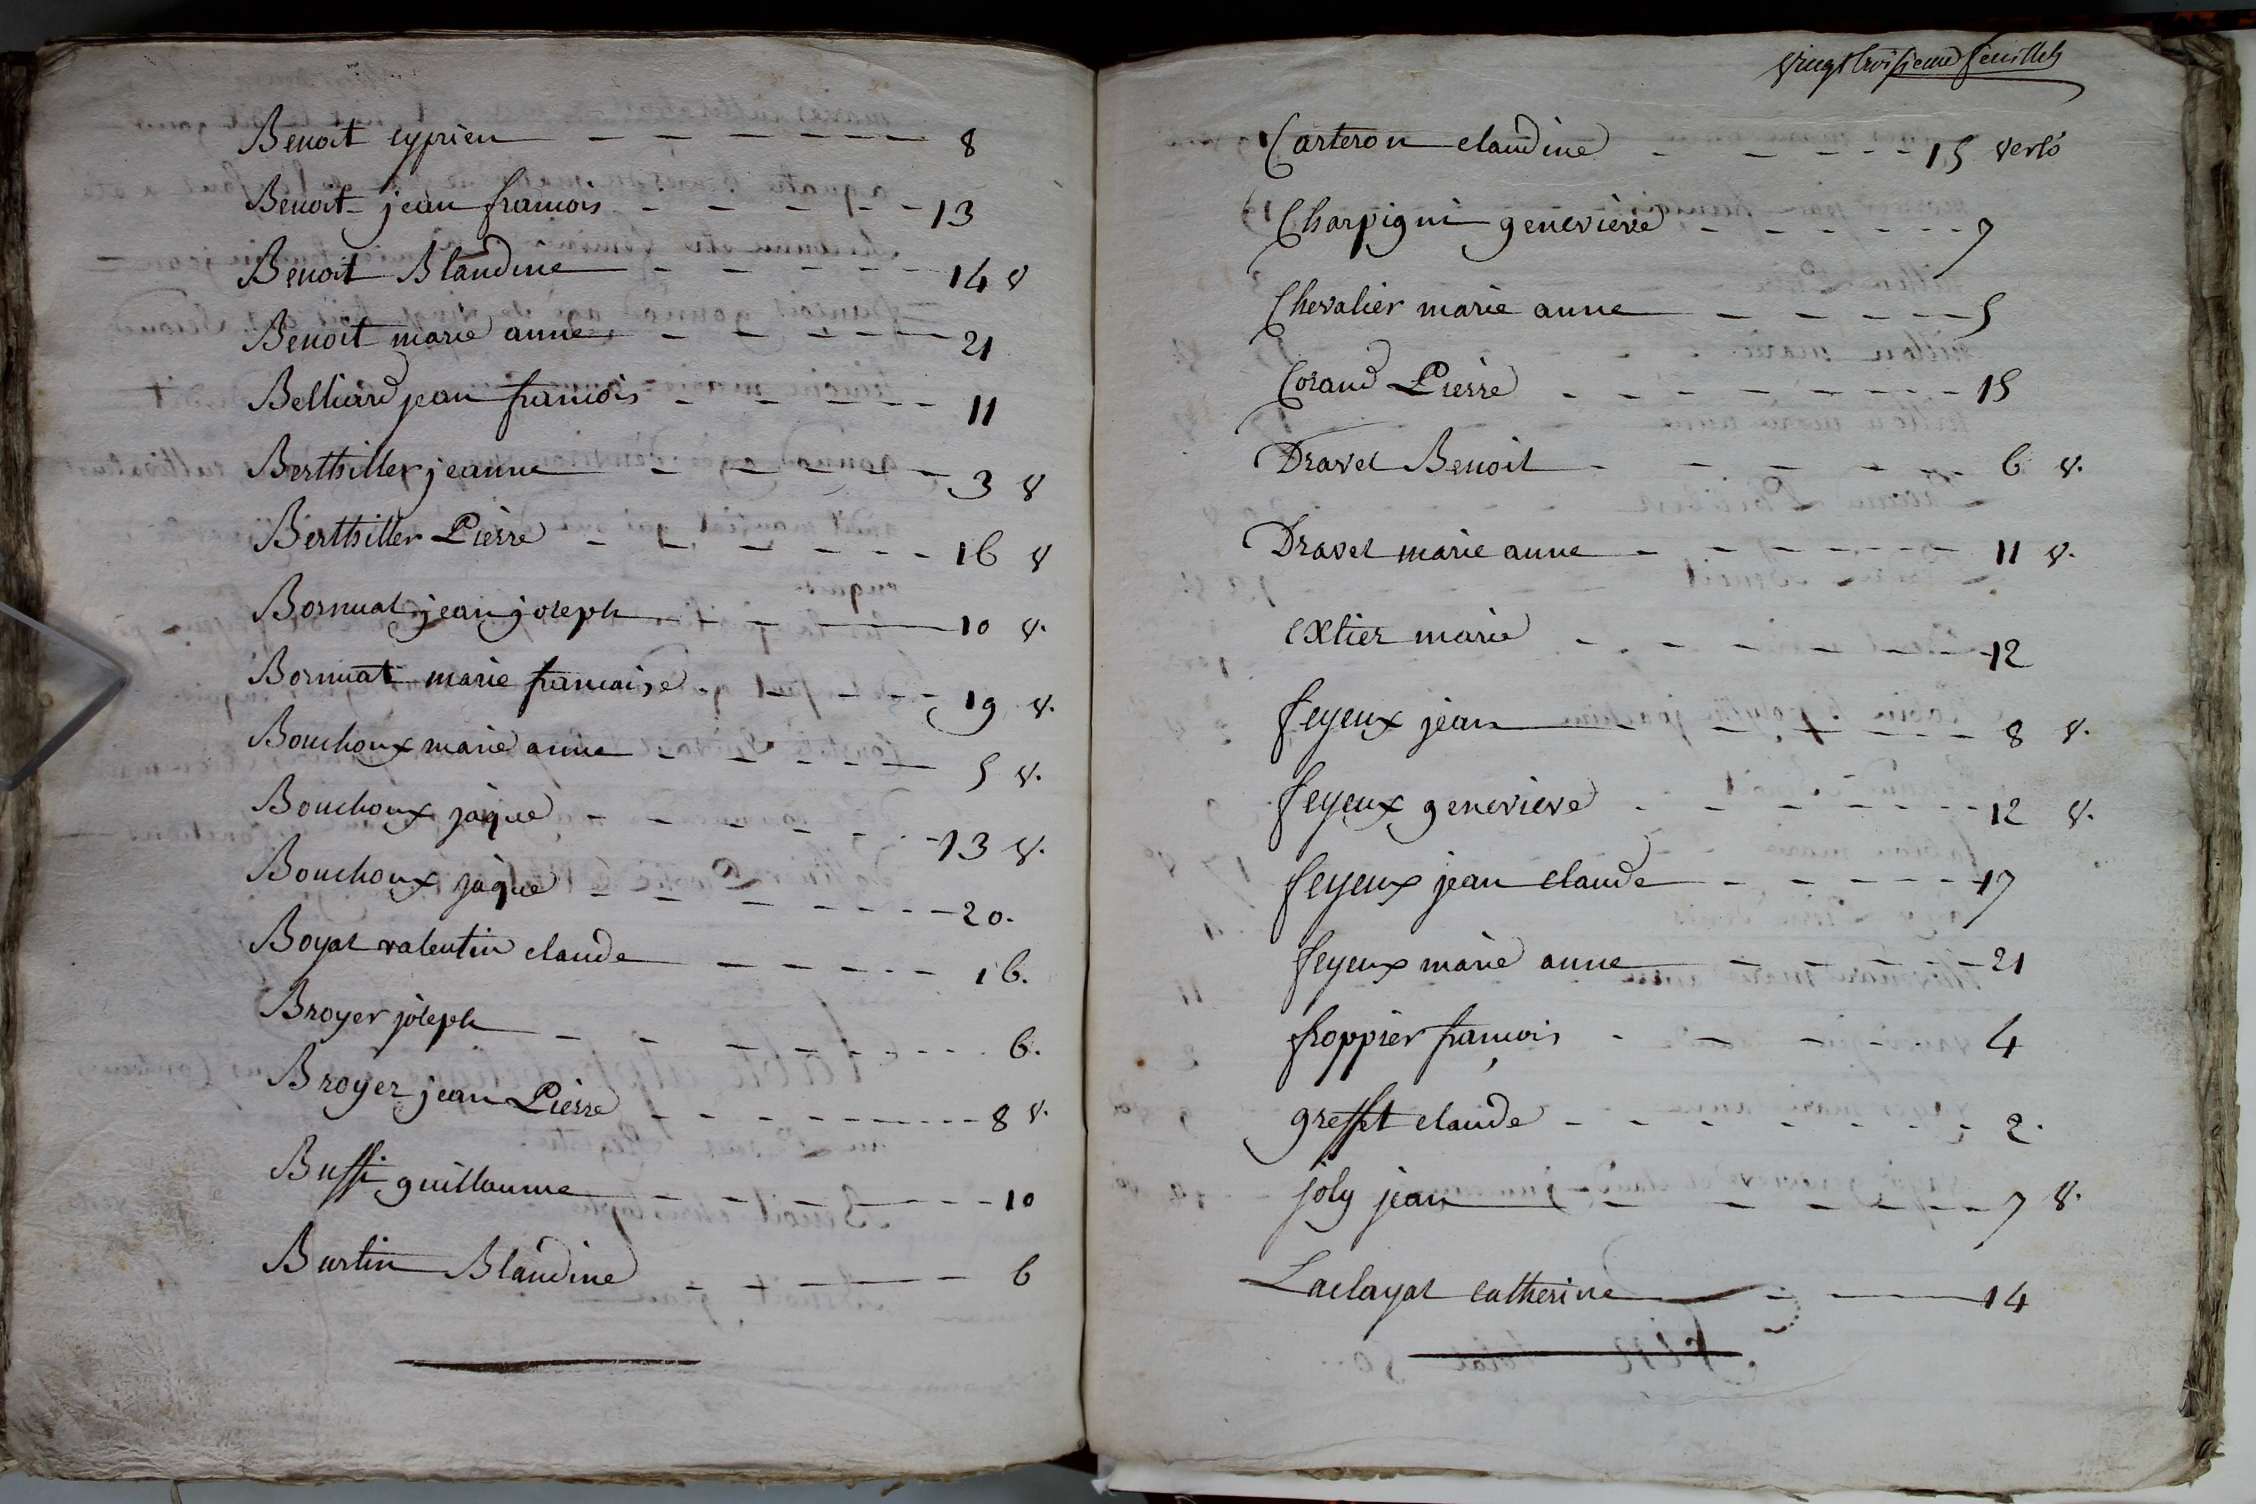 Benoit cyprien 8
Benoit jean francois 13
Benoit Blandine 14 v
Benoit marie anne 21
Belliard jean francois 11
Berthiller jeanne 3 v
Berthiller Pierre 16 v
Bornuat jean joseph 10 v.
Bornuat marie francaise 19 v.
Bouchoux marie anne 5 v.
Bouchoux jaque 13 v.
Bouchoux jaque 20.
Boyat valentin claude 16.
Broyer joseph 6.
Broyer jean Pierre 8 v.
Bussi guillaume 10
Burtin Blandine 6
vingt troisieme feuillet
Carteron claudine 15 verso
Charpigni genevieve 7
Chevalier marie anne 5
Corand Pierre 15
Dravet Benoit 6 v.
Dravet marie anne 11 v.
extier marie 12
feyeux jean 8 v.
feyeux genevieve 12 v.
feyeux jean claude 17
feyeux marie anne 21
froppier françois 4
greffet claude 2.
joly jean 7 v.
Laclayat catherine 14